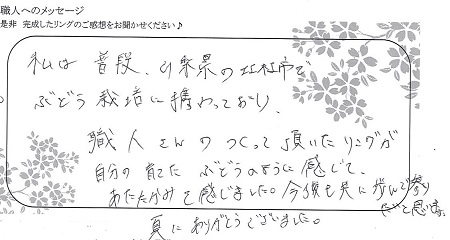 職人へのメッセージ
是非 完成したリングのご感想をお聞かせください♪
私は 普段、山梨県の 北杜市で
ぶどう 栽培に 携わっており
職人さんの つくって 頂いた リングが
自分の 育てた ぶどうのように 感じて、
あたたかみを 感じました。今後も共に 歩んで参り
たいと思います。
夏に ありがとうございました。